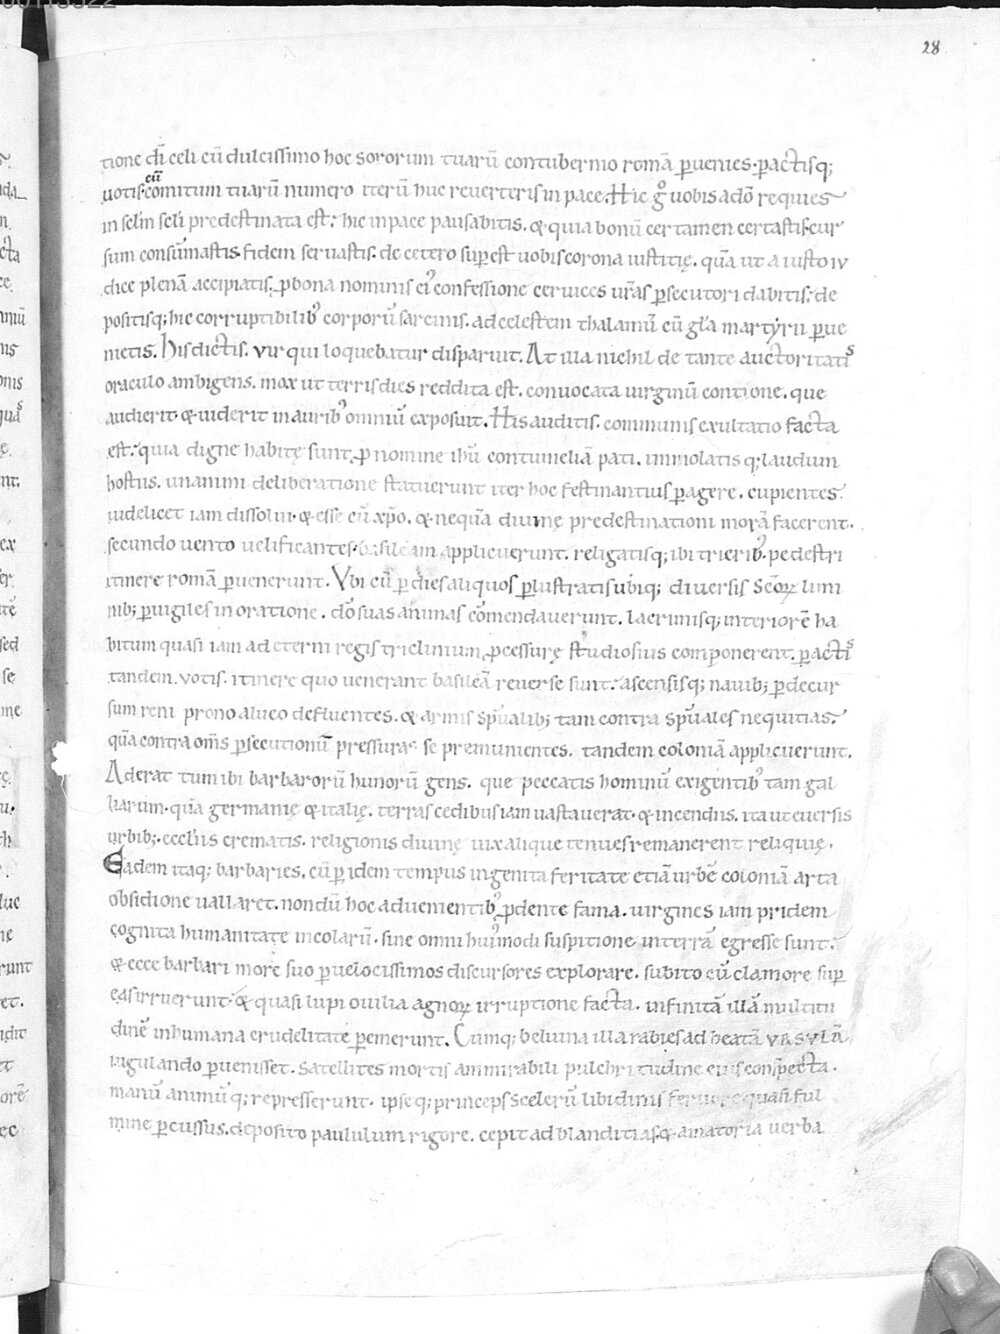 28
tione dī celi cū dulcissimo hoc sororum tuarū contubernio romā ꝑuenies. pactisq;
uotis. cū comitum tuarū numero iterū huc reuerteris in pace. Hic gͦ uobis adō requies
in selm̄ seli predestinata est. hic in pace pausabitis. & quia bonū certamen certastis. cur
sum consūmastis. fidem seruastis. de cetero suꝑest uobis corona iustitię. quā ut a iusto iu
dice plenā accipiatis. ꝓ bona nominis ei' confessione ceruices ur̄as ꝑsecutori dabitis. de
positisq; hic corruptibilib' corporū sarcinis. ad celestem thalamū cū gl'a martyrii ꝑue
nietis. His dictis. vir qui loquebatur disparuit. At illa nichil de tante auctoritatis
oraculo ambigens. mox ut terris dies reddita est. conuocata uirginū contione. que
audierit & uiderit in aurib' omniū exposuit. His auditis. communis exultatio facta
est. quia digne habitę sunt ꝓ nomine ihū contumeliā pati. immolatisq; laudum
hostiis. unanimi deliberatione statuerunt iter hoc festinantius ꝑagere. cupientes
uidelicet iam dissolui. & esse cū xp̄o. & nequā diuinę predestinationi morā facerent.
secundo uento uelificantes. basileam applicuerunt. religatisq; ibi trierib'. pedestri
itinere romā ꝑuenerunt. Vbi cū ꝑ dies aliquos ꝑlustratis ubiq; diuersis sc̄oꝝ limi
nib; ꝑuigiles in oratione. dō suas animas cōmendauerunt. lacrimisq; interiorē ha
bitum quasi iam ad eterni regis triclinium ꝓcessurę studiosius componerent. ꝑactis
tandem uotis. itinere quo uenerant basileā reuerse sunt. ascensisq; nauib; ꝑ decur
sum reni prono alueo defluentes. & armis sp̄ualib; tam contra sp̄uales nequitias.
quā contra om̄s ꝑsecutionū pressuras se premunientes. tandem coloniā applicuerunt.
Aderat tum ibi barbarorū hunorū gens. que peccatis hominū exigentib' tam gal
liarum. quā germanię & italię. terras cedibus iam uastauerat. & incendiis. ita ut euersis
urbib;. eccl'iis crematis. religionis diuinę uix alique tenues remanerent reliquię.
Eadem itaq; barbaries. cū ꝑ idem tempus ingenita feritate etiā urbē coloniā arta
obsidione uallaret. nondū hoc aduenientib' ꝓdente fama. uirgines iam pridem
cognita humanitate incolarū. sine omni hui'modi suspitione in terrā egresse sunt.
& ecce barbari more suo ꝑ uelocissimos discursores explorare. subito cū clamore suꝑ
eas irruerunt. & quasi lupi ouilia agnoꝝ irruptione facta. infinitā illā multitu
dinē inhumana crudelitate ꝑemerunt. Cumq; beluina illa rabies ad beatā VRSVLĀ
iugulando ꝑuenisset. satellites mortis ammirabili pulchritudine eius conspecta.
manū animūq; represserunt. ipseq; princeps scelerū libidinis feruore quasi ful
mine ꝑcussus. deposito paululum rigore. cepit ad blanditias & amatoria uerba